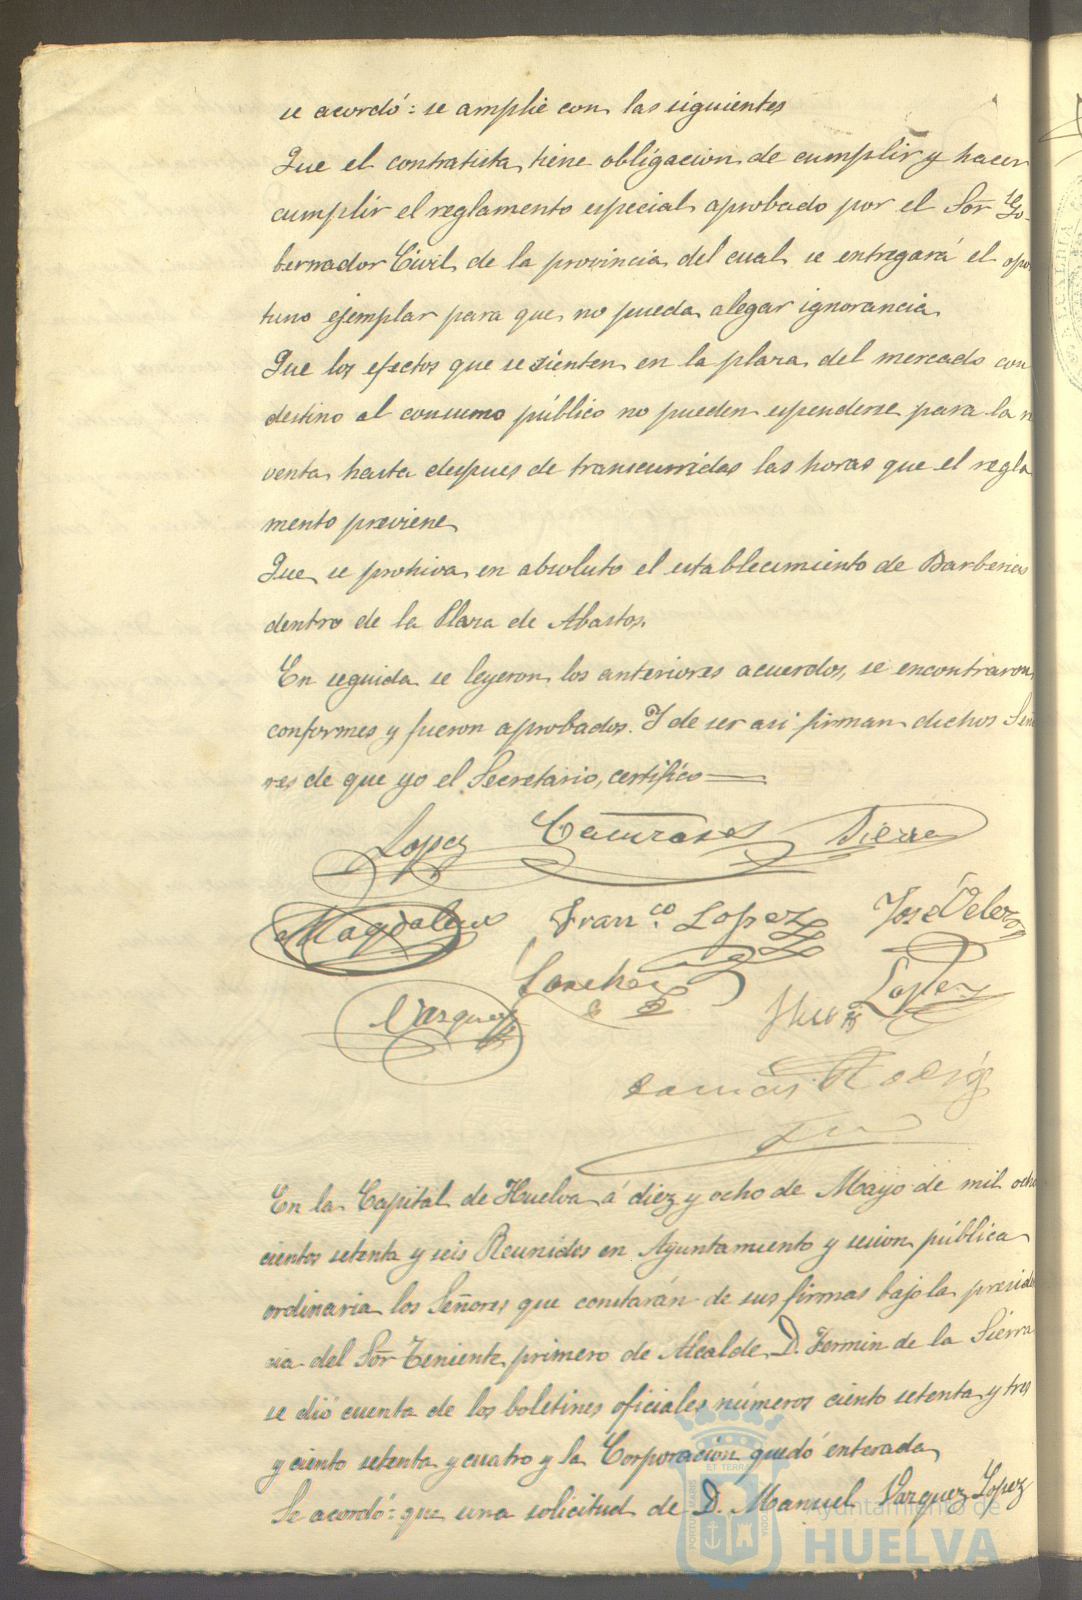 se acordó: se amplie con las siguientes
Que el contratista tiene obligacion de cumplir y hacer
cumplir el reglamento especial aprobado por el Sor Go-
bernador Civil de la provincia del cual se entregará el opor
tuno ejemplar para que no pueda alegar ignorancia
Que los efectos que se sienten en la plaza del mercado con
destino al consumo público no pueden espenderse para la r
venta hasta despues de transcurridas las horas que el regla
mento previene
Que se prohiva en absoluto el establecimiento de Barberias
dentro de la Plaza de Abastos.
En seguida se leyeron los anteriores acuerdos, se encontraron
conformes y fueron aprobados. Y de ser asi firman dichos Seño
res de que yo el Secretario, certifico
Lopez Sierra
Magdalena Franco. Lopez José Velez
Sanchez Lopez
Vazquez
Rodrig
En la Capital de Huelva á diez y ocho de Mayo de mil ocho
cientos setenta y seis Reunidos en Ayuntamiento y sesion pública
ordinaria los Señores que constarán de sus firmas bajo la presiden
cia del Sor Teniente primero de Alcalde D. Fermin de la Sierra
se dió cuenta de los boletines oficiales números ciento setenta y tres
y ciento setenta y cuatro y la Corporación quedó enterada
Se acordó: que una solicitud de D. Manuel Vazquez Lopez
Ayuntamiento de
HUELVA